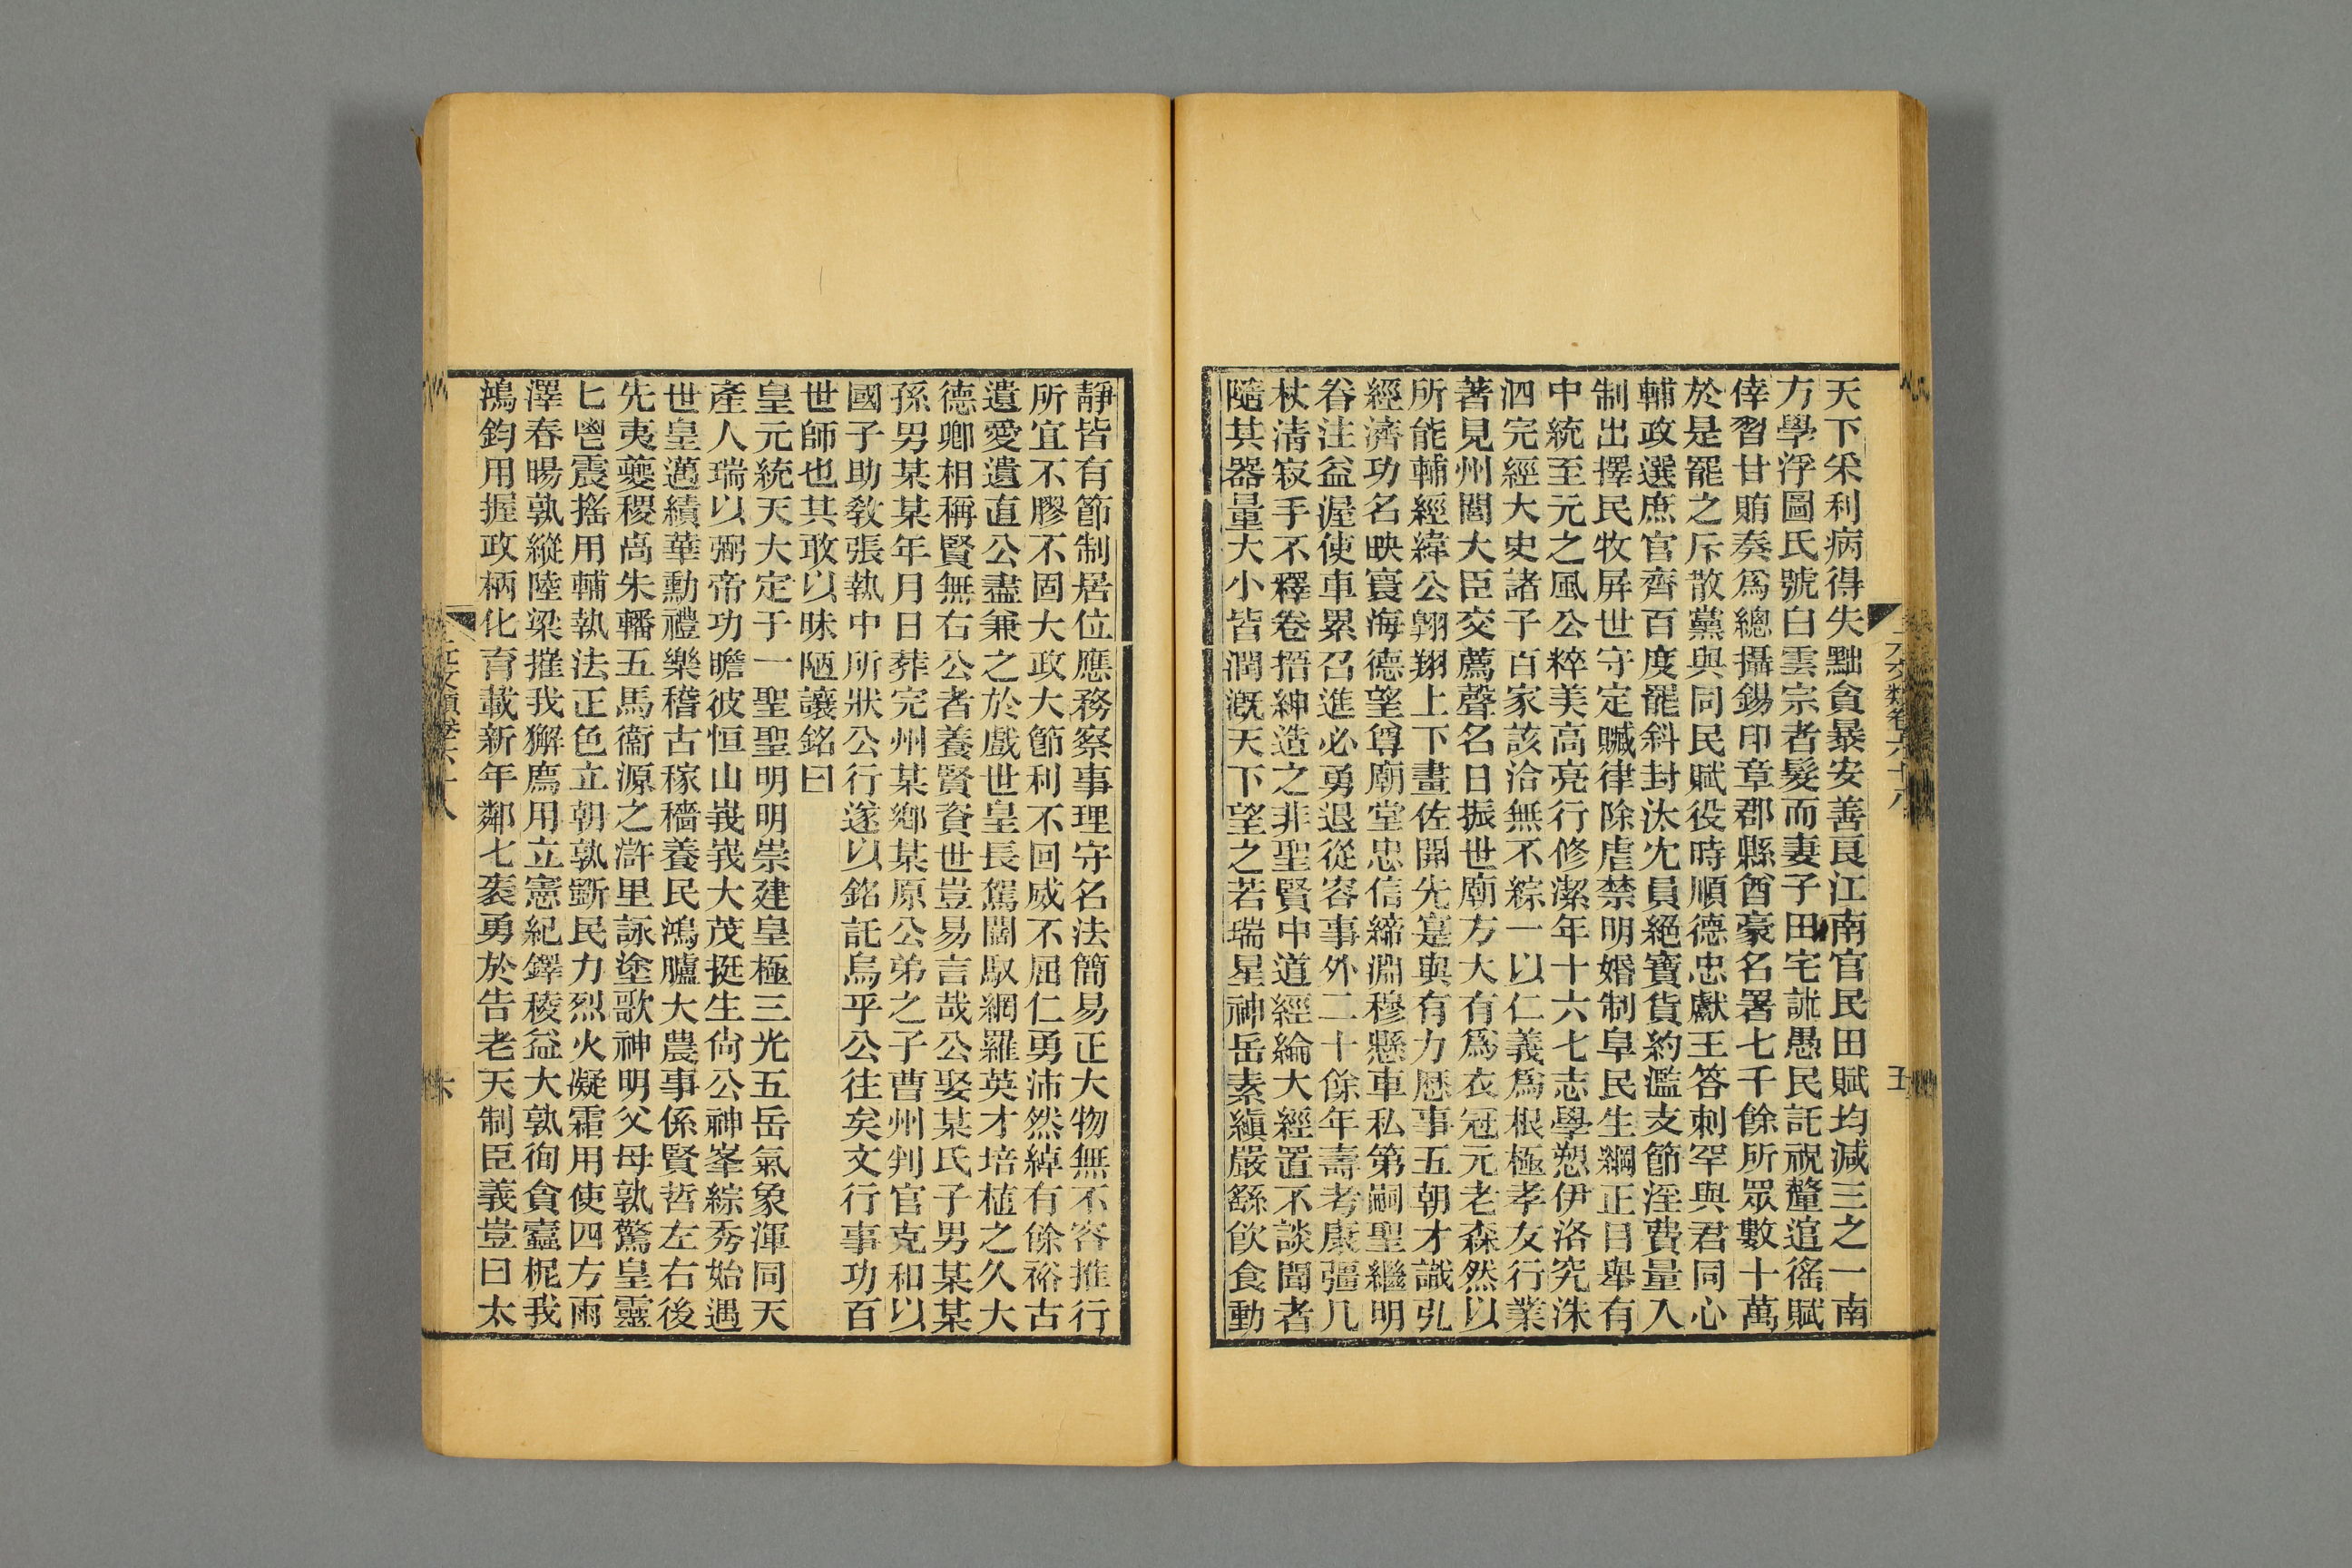 天下采利病得失黜貪暴安善良江南官民田賦均減三之一南
方學浮圖氏號白雲宗者髮而妻子田宅訛愚民託祝釐逭徭賦
倖習甘賄奏爲總攝錫印章郡縣酋豪名署七千餘所眾數十萬
於是罷之斥散黨與同民賦役時順德忠獻王答刺罕與君同心
輔政選庶官齊百度罷斜封汰冗員絕寶貨約濫支節淫費量入
制出擇民牧屏世守定贓律除虐禁明婚制阜民生綱正目舉有
中統至元之風公粹美高亮行修潔年十六七志學懇伊洛究洙
泗完經大史諸子百家該洽無不綜一以仁義爲根極孝友行業
著見州閭大臣交薦聲名日振世廟方大有爲衣冠元老森然以
所能輔經緯公翱翔上下畫佐開先寔與有力歷事五朝才識弘
經濟功名映寰海德望尊廟堂忠信締淵穆懸車私第嗣聖繼明
眷注益渥使車累召進必勇退從容事外二十餘年壽考康彊几
杖清寂手不釋卷搢紳造之非聖賢中道經綸大經置不談聞者
隨其器量大小皆潤溉天下望之若瑞星神岳素縝嚴繇飲食動
元文類卷六十八
五
靜皆有節制居位應務察事理守名法簡易正大物無不容推行
所宜不膠不固大政大節利不回威不屈仁勇沛然綽有餘裕古
遺愛遺直公盡兼之於戲世皇長駕闊馭網羅英才培植之久大
德卿相稱賢無右公者養賢資世豈易言哉公娶某氏子男某某
孫男某某年月日葬完州某鄉某原公弟之子曹州判官克和以
國子助敎張執中所狀公行遂以銘託烏乎公往矣文行事功百
世師也其敢以昧陋讓銘曰
皇元統天大定于一聖聖明明崇建皇極三光五岳氣象渾同天
產人瑞以弼帝功瞻彼恒山峩峩大茂挺生尙公神峯綜秀始遇
世皇邁績華勳禮樂稽古稼穡養民鴻臚大農事係賢哲左右後
先夷夔稷卨朱轓五馬衞源之滸里詠塗歌神明父母孰驚皇靈
匕鬯震搖用輔執法正色立朝孰斵民力烈火凝霜用使四方雨
澤春暘孰縱陸梁摧我獬廌用立憲紀鐸稜益大孰徇貪蠹柅我
鴻鈞用握政柄化育載新年鄰七袠勇於告老天制臣義豈曰太
元文類卷六十八
六